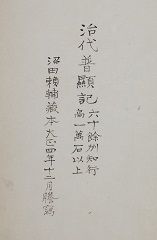 治代普顯記
六十餘州知行
高一萬石以上
沼田頼輔藏本大正四年十二月謄寫